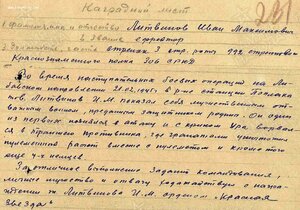 231
Наградной лист
1. Фамилия, имя и отчество Литвинов Иван Максимович
2. Звание ефрейтор
3. Должность, часть стрелок 3 стр. роты 992 стрелкового
Краснознаменного полка 306 СРКД
Во время наступательных боевых операций на Ли-
бавском направлении 21.02.45 г. в р-не станции
Литвинов И.М. показал себя мужественным отваж-
ным, преданным защитником родины. Он один
из первых поднялся в атаку и с криком Ура ворвал-
ся в траншеи противника, где гранатами уничтожил
пулеметный расчет вместе с пулеметом и кроме того
еще 4-х немцев.
За отличное выполнение задания командования,
личное мужество и отвагу ходатайствую о награ-
ждении т. Литвинова И.М. орденом „Красная
Звезда"